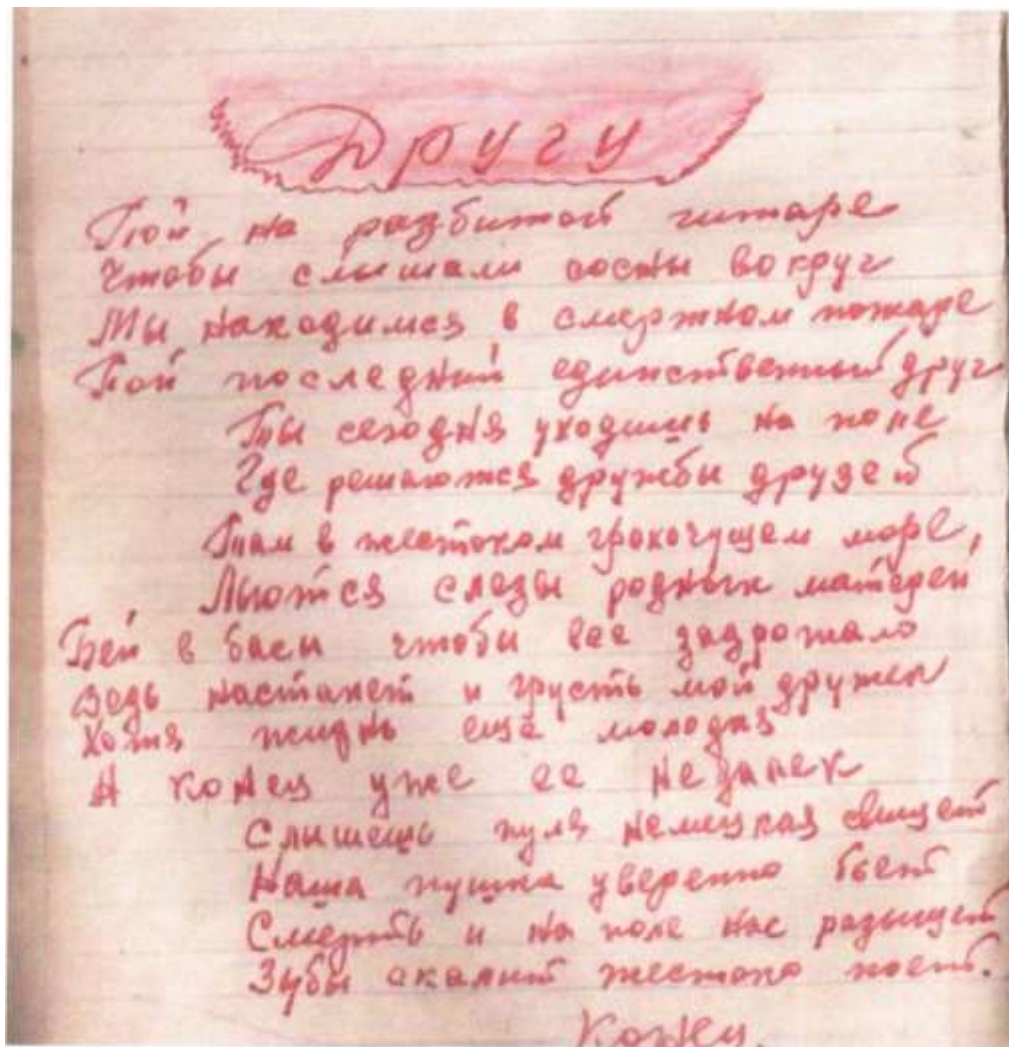 Другу
Пой на разбитой гитаре
Чтобы слышали сосны вокруг
Мы находимся в смертном пожаре
Пой последний единственный друг
Ты сегодня уходишь на поле
Где решаются дружбы друзей
Там в жестоком грохочущем море,
Льются слезы родных матерей
Бей в басы чтобы все задрожало
Ведь настанет и грусть мой дружек
Хотя жизнь ещё молодая
А конец уже ее недалек
Слышешь пуля немецкая свищет
Наша пушка уверенно бьет
Смерть и на поле нас разыщет
Зубы скалит жестоко поет.
Конец.